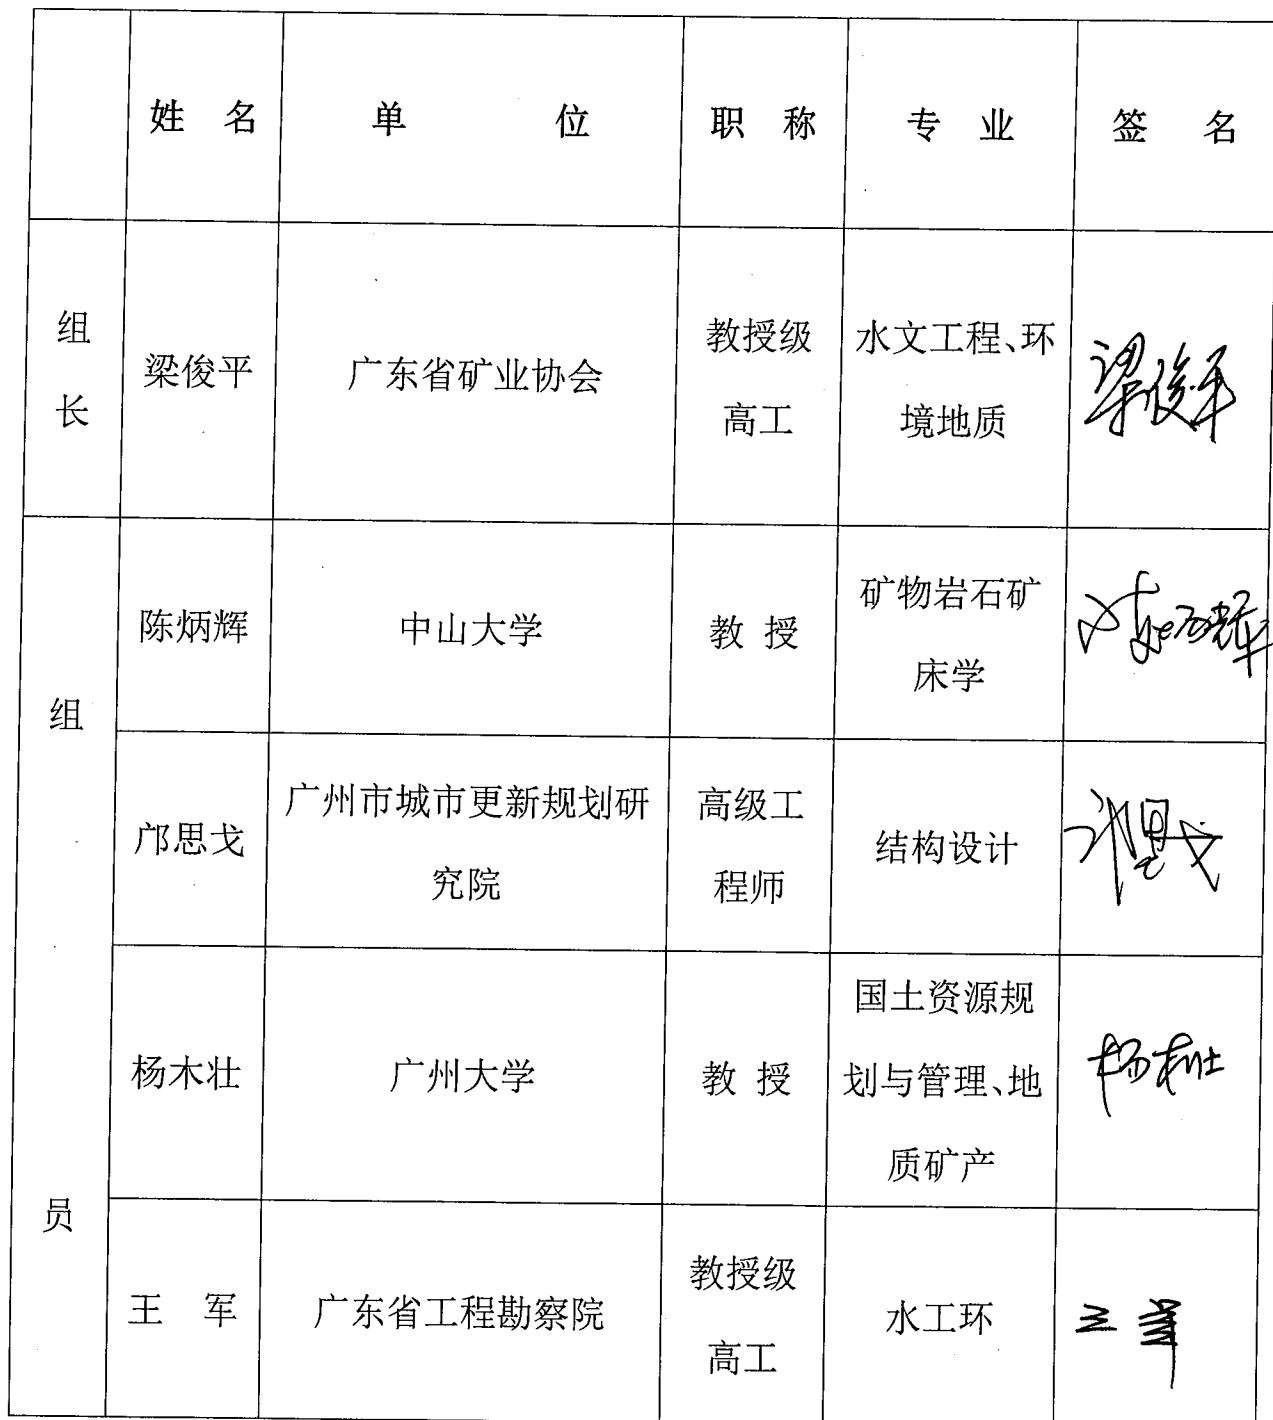 姓 名 单 位 职 称 专 业 签 名
组
长
梁俊平
广东省矿业协会
教授级
高工
水文工程、环
境地质
梁俊平
组
员
陈炳辉
中山大学
教 授
矿物岩石矿
床学
陈炳辉
邝思戈
广州市城市更新规划研
究院
高级工
程师
结构设计
邝思戈
杨木壮
广州大学
教 授
国土资源规
划与管理、地
质矿产
杨木壮
王 军
广东省工程勘察院
教授级
高工
水工环
王军